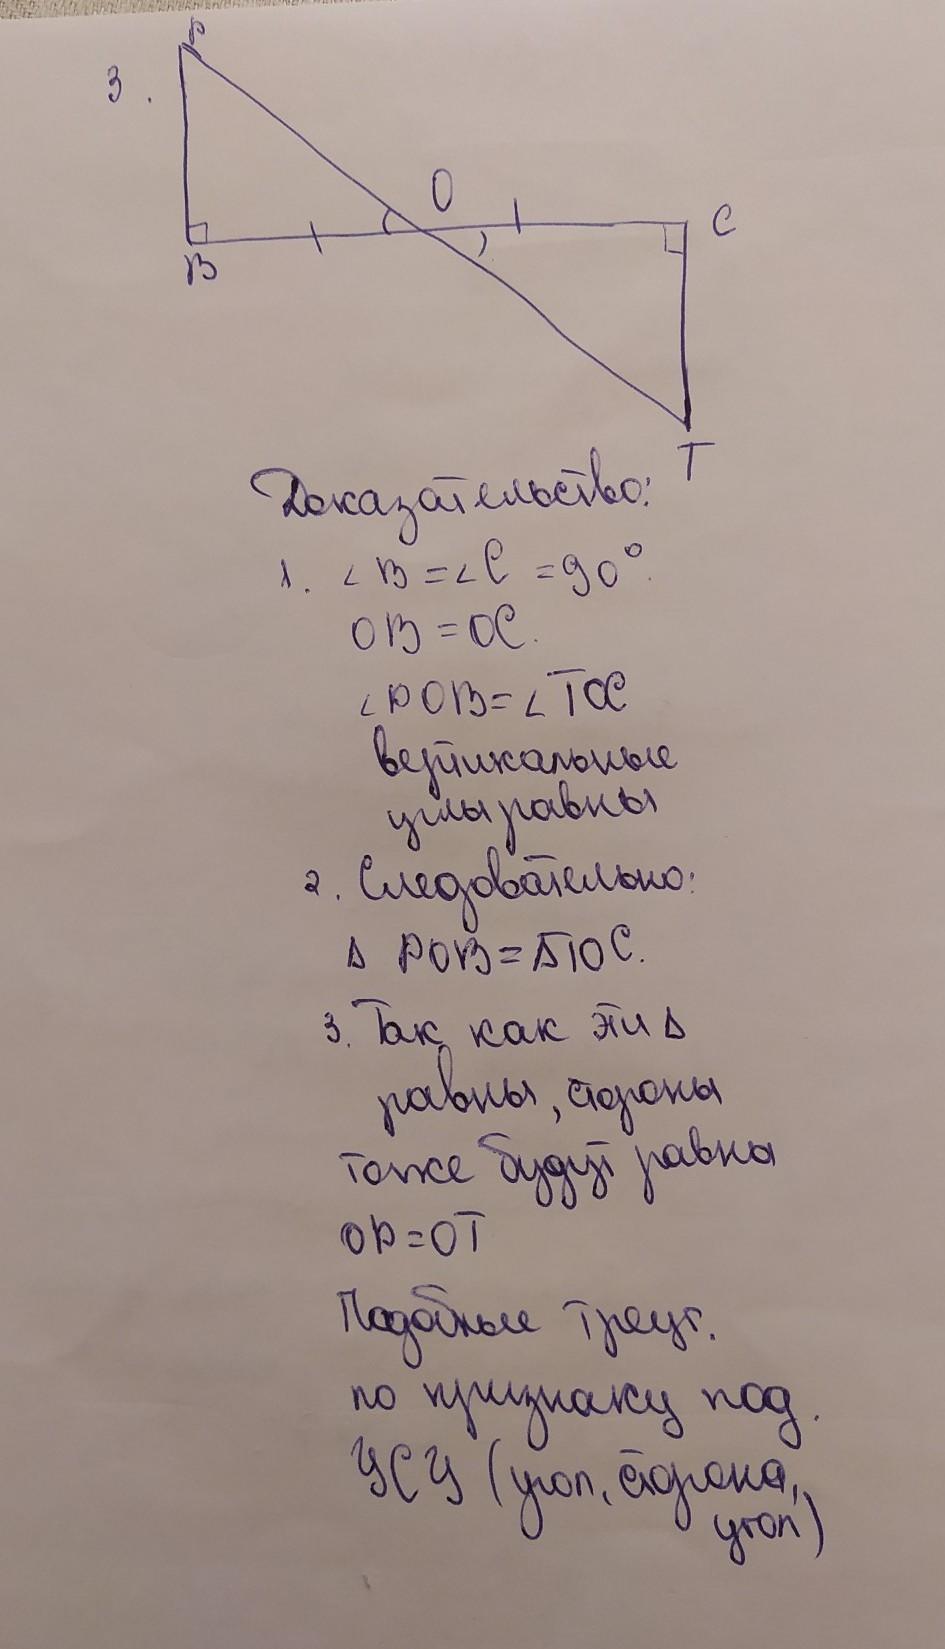 Р
3.
О
С
В
Т
Доказательство:
1. ∠В=∠С=90°.
ОВ=ОС.
∠РОВ=∠ТОС
вертикальные
углы равны
2. Следовательно:
Δ РОВ=ΔТОС.
3. Так как эти Δ
равны, стороны
тоже будут равны
ОР=ОТ
Подобные треуг.
по признаку под.
УСУ (угол, сторона,
угол)